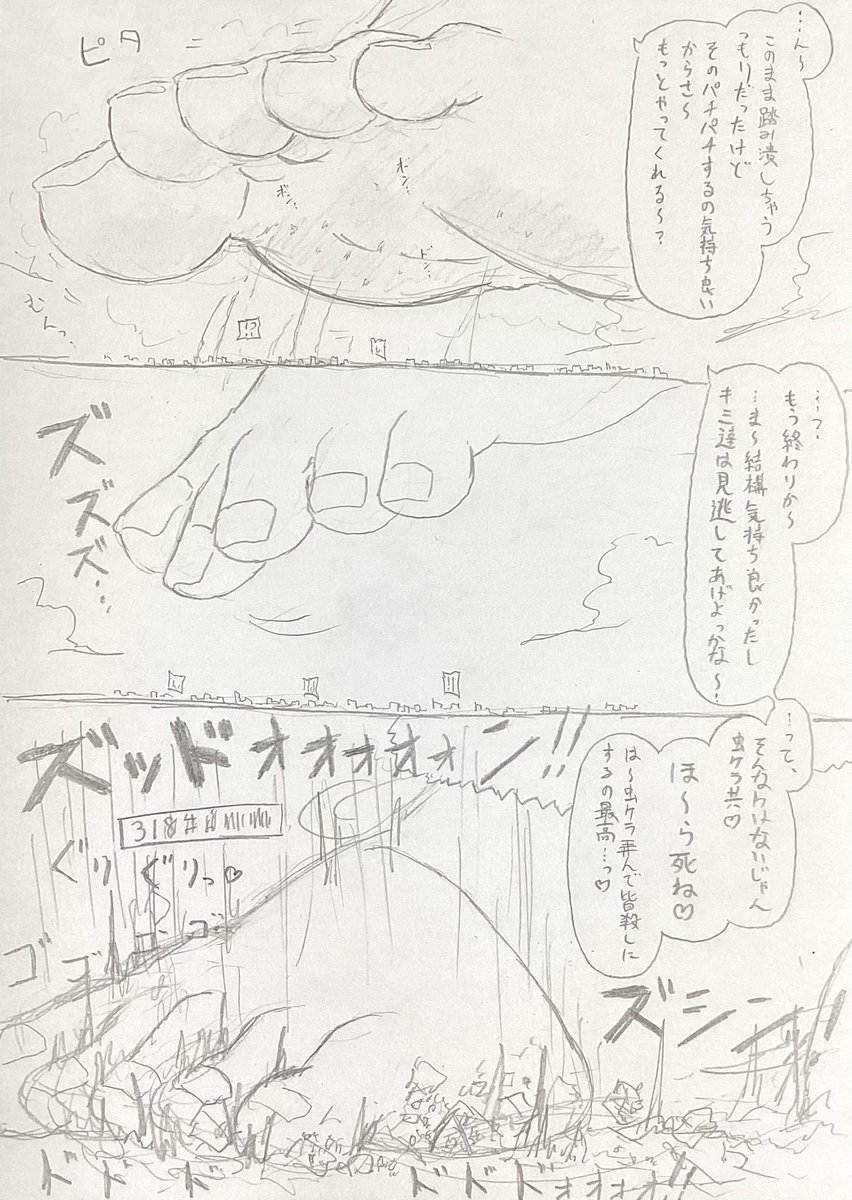 …ん〜
このまま踏み潰しちゃう
つもりだったけど
そのパチパチするの気持ち良い
からさ〜
もっとやってくれる〜?
ピタ
ボン…
ボン…
ドン…
むんっ…
!?
…っ…
もう終わりか〜
…ま〜結構気持ち良かったし
キミ達は見逃してあげよっかな〜…
ズズズ…
!!
…って、
そんなわけないじゃん
虫ケラ共♡
ほ〜ら死ね♡
は〜虫ケラ弄んで皆殺しに
するの最高…っ♡
ズッドォオォォォン!!
ぐり
ぐりっ♡
ゴゴゴゴ
ズシーン
ドドド
ドドドォォォ!!